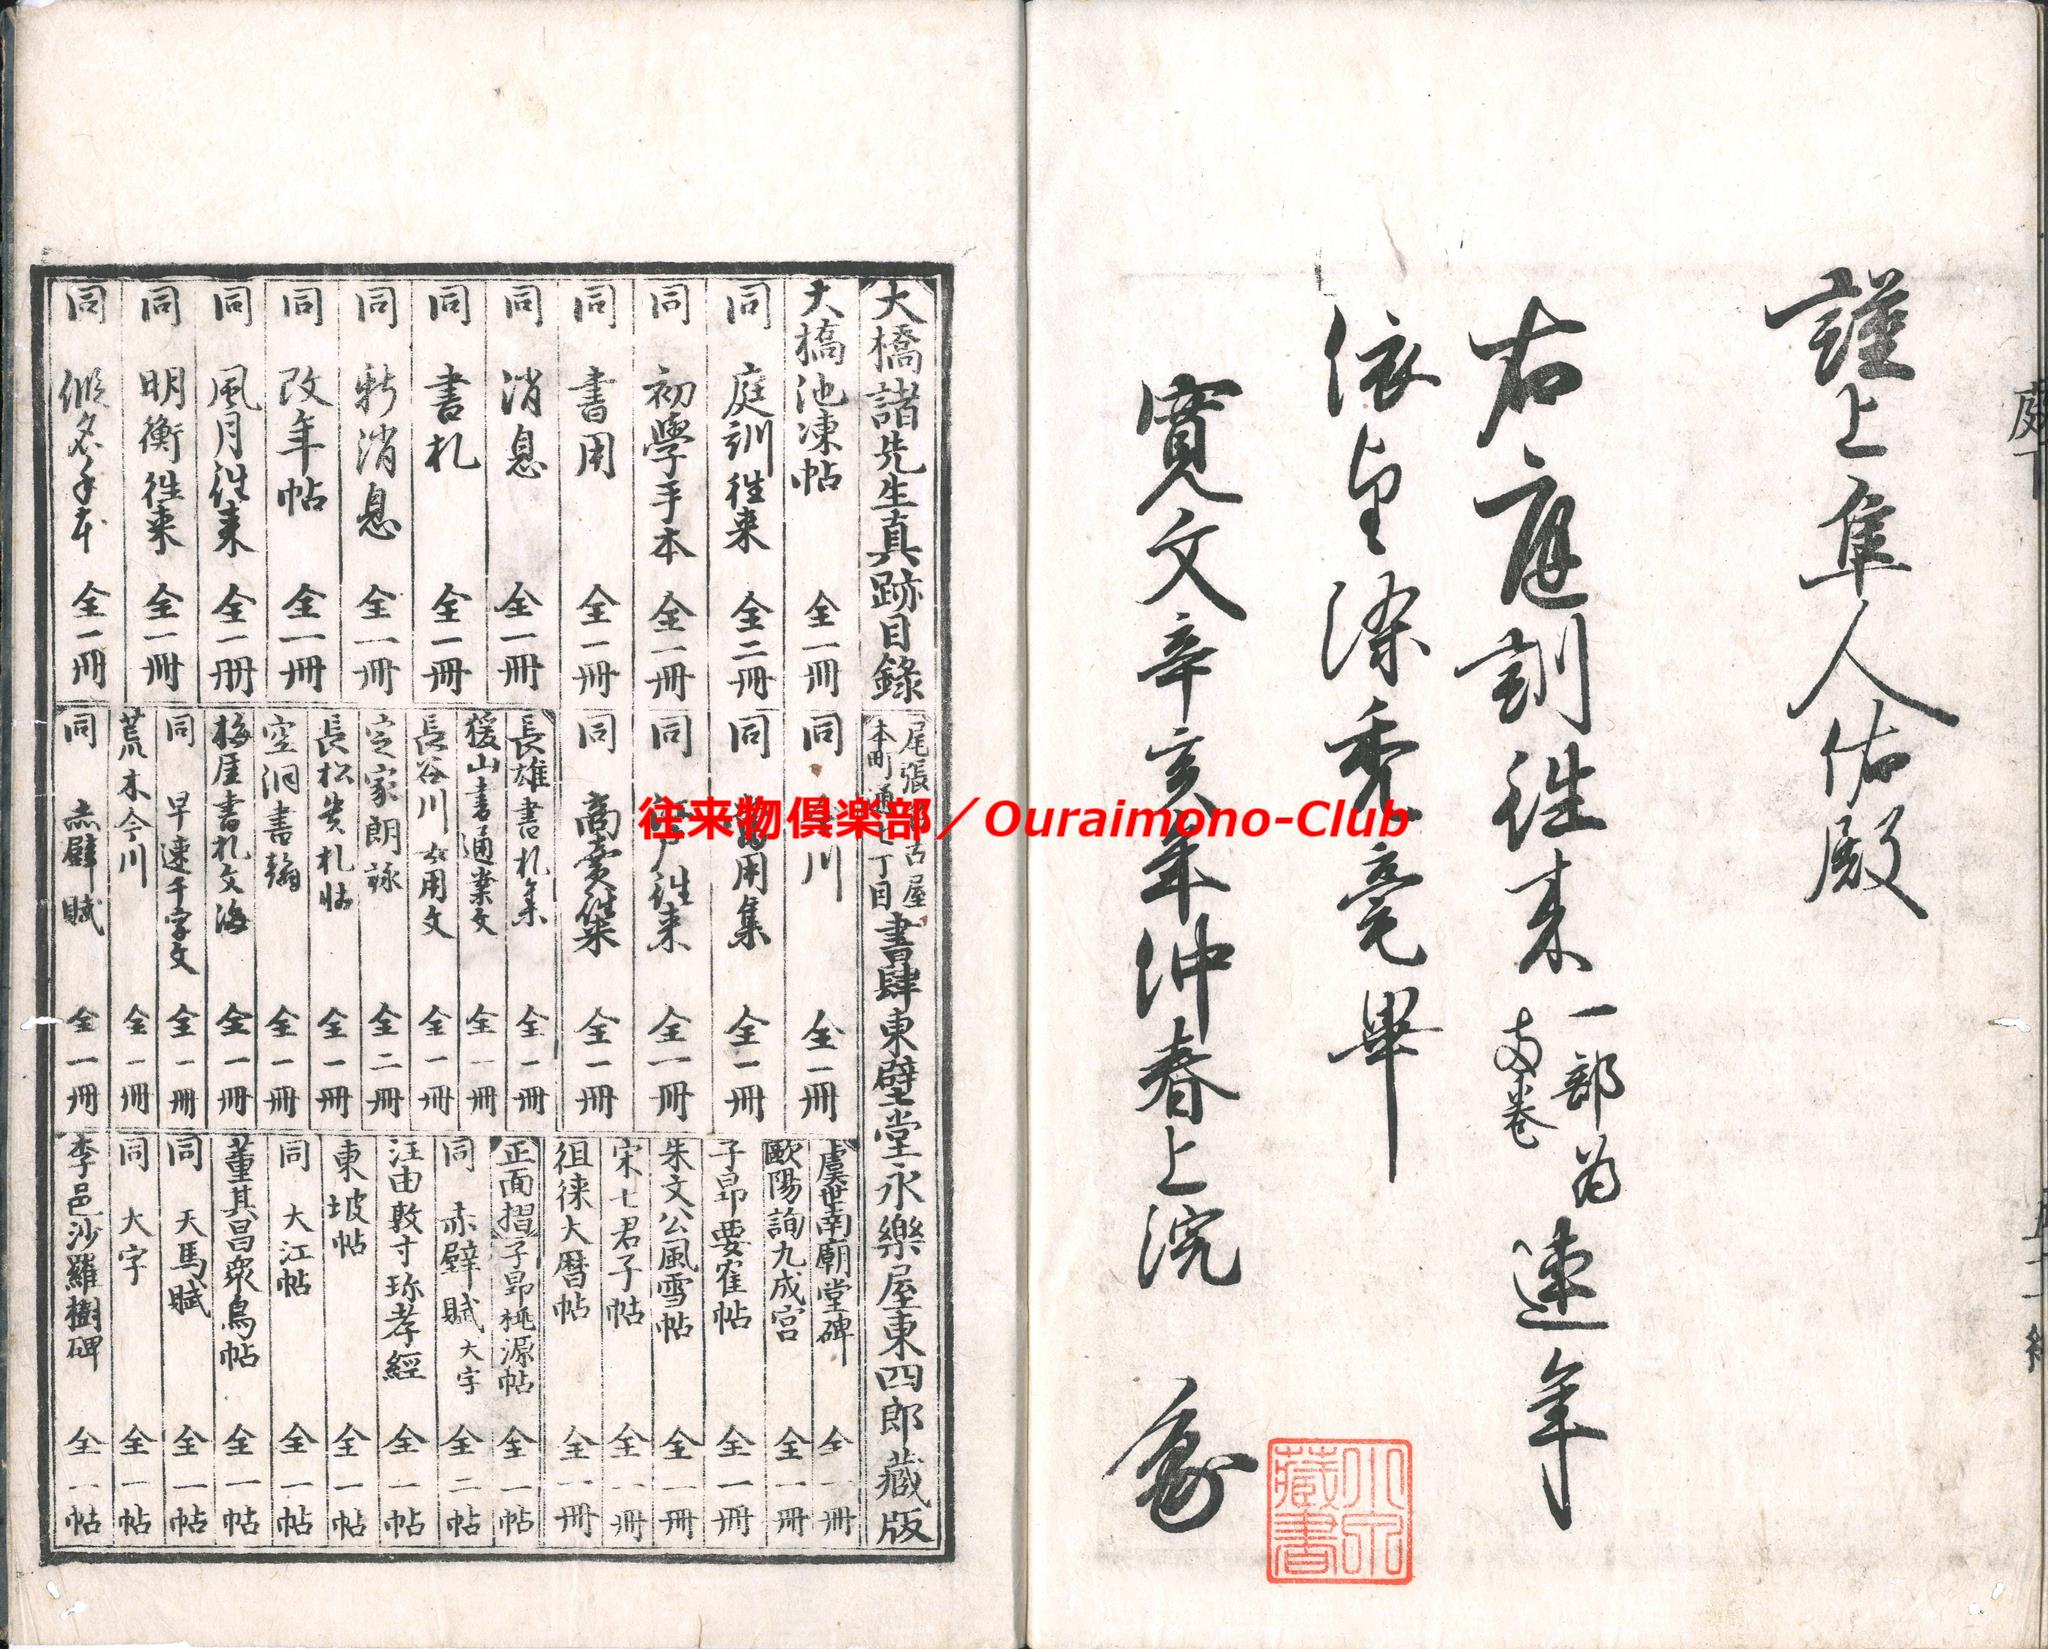 謹上隼人佑殿
右庭訓往来一部為両巻連年
依望染禿毫畢
寛文辛亥年仲春上浣
小川蔵書
大橋諸先生真跡目錄
本町通七丁目
書肆東壁堂永樂屋東四郎藏版
大橋池凍帖 全一冊
同 庭訓往来 全二冊
同 初學手本 全一冊
同 書用 全一冊
同 消息 全一冊
同 書札 全一冊
同 新消息 全一冊
同 改年帖 全一冊
同 風月往来 全一冊
同 明衡往来 全一冊
同 假名手本 全一冊
同 川 全一冊
同 用集 全一冊
同 往来 全一冊
同 商賣往来 全一冊
長雄書札集 全一冊
猨山書通案文 全一冊
長谷川女用文 全一冊
定家朗詠 全二冊
長松貴札帖 全一冊
空洞書翰 全一冊
梅厓書札文海 全一冊
同 早速千字文 全一冊
荒木今川 全一冊
同 赤壁賦 全一冊
虞世南廟堂碑 全一冊
歐陽詢九成宮 全一冊
子昂要隺帖 全一冊
朱文公風雪帖 全一冊
宋七君子帖 全一冊
徂徠大曆帖 全一冊
正面摺子昂桃源帖 全一帖
同 赤壁賦大字 全二帖
汪由敦寸珎孝經 全一帖
東坡帖 全一帖
同 大江帖 全一帖
董其昌衆鳥帖 全一帖
同 天馬賦 全一帖
同 大字 全一帖
李邕沙羅樹碑 全一帖
往来物倶楽部／Ouraimono-Club